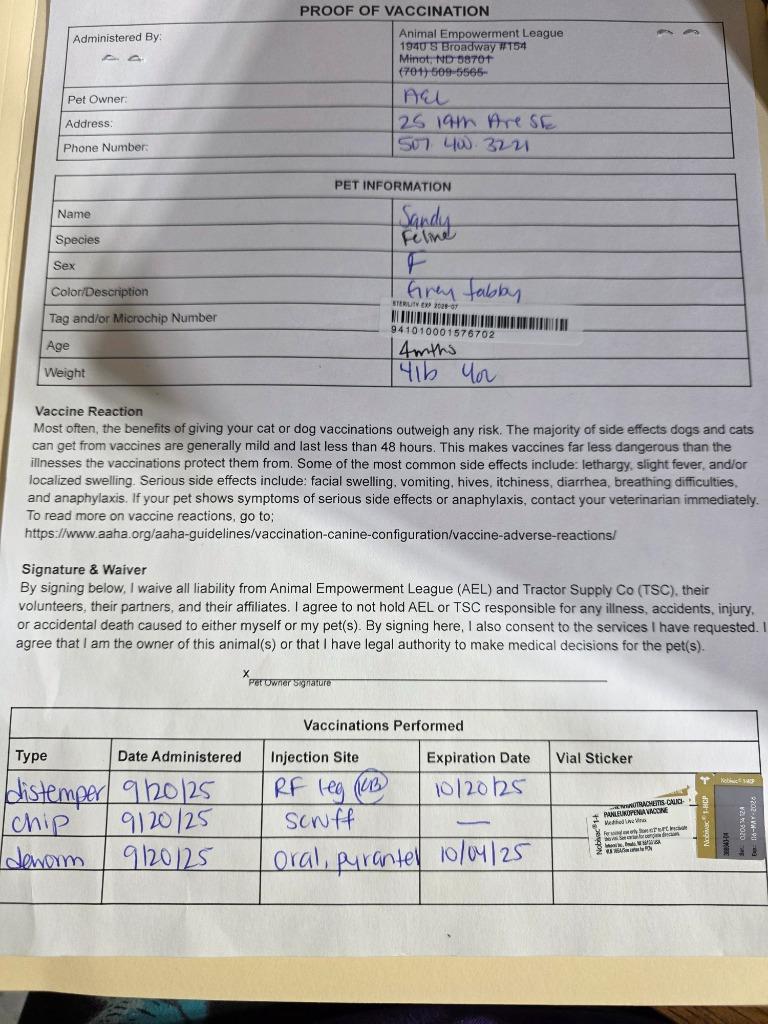 PROOF OF VACCINATION
Administered By:
Animal Empowerment League
1940 S Broadway #154
Minot, ND 58701
(701) 509-5565
Pet Owner: AEL
Address: 25 19th Ave SE
Phone Number: 507 400 3221
PET INFORMATION
Name Sandy
Species Feline
Sex F
Color/Description Grey tabby
STERILITY EXP 2028-07
Tag and/or Microchip Number
941010001576702
Age 4mths
Weight 4lb 4oz
Vaccine Reaction
Most often, the benefits of giving your cat or dog vaccinations outweigh any risk. The majority of side effects dogs and cats
can get from vaccines are generally mild and last less than 48 hours. This makes vaccines far less dangerous than the
illnesses the vaccinations protect them from. Some of the most common side effects include: lethargy, slight fever, and/or
localized swelling. Serious side effects include: facial swelling, vomiting, hives, itchiness, diarrhea, breathing difficulties,
and anaphylaxis. If your pet shows symptoms of serious side effects or anaphylaxis, contact your veterinarian immediately.
To read more on vaccine reactions, go to;
https://www.aaha.org/aaha-guidelines/vaccination-canine-configuration/vaccine-adverse-reactions/
Signature & Waiver
By signing below, I waive all liability from Animal Empowerment League (AEL) and Tractor Supply Co (TSC), their
volunteers, their partners, and their affiliates. I agree to not hold AEL or TSC responsible for any illness, accidents, injury,
or accidental death caused to either myself or my pet(s). By signing here, I also consent to the services I have requested. I
agree that I am the owner of this animal(s) or that I have legal authority to make medical decisions for the pet(s).
X
Pet Owner Signature
Vaccinations Performed
Type Date Administered Injection Site Expiration Date Vial Sticker
distemper 9/20/25 RF leg 10/20/25
chip 9/20/25 scruff —
deworm 9/20/25 oral, pyrantel 10/04/25
Nobivac® 1-HCP
CALICI-
PANLEUKOPENIA VACCINE
Modified Live Virus
Nobivac® 1-HCP